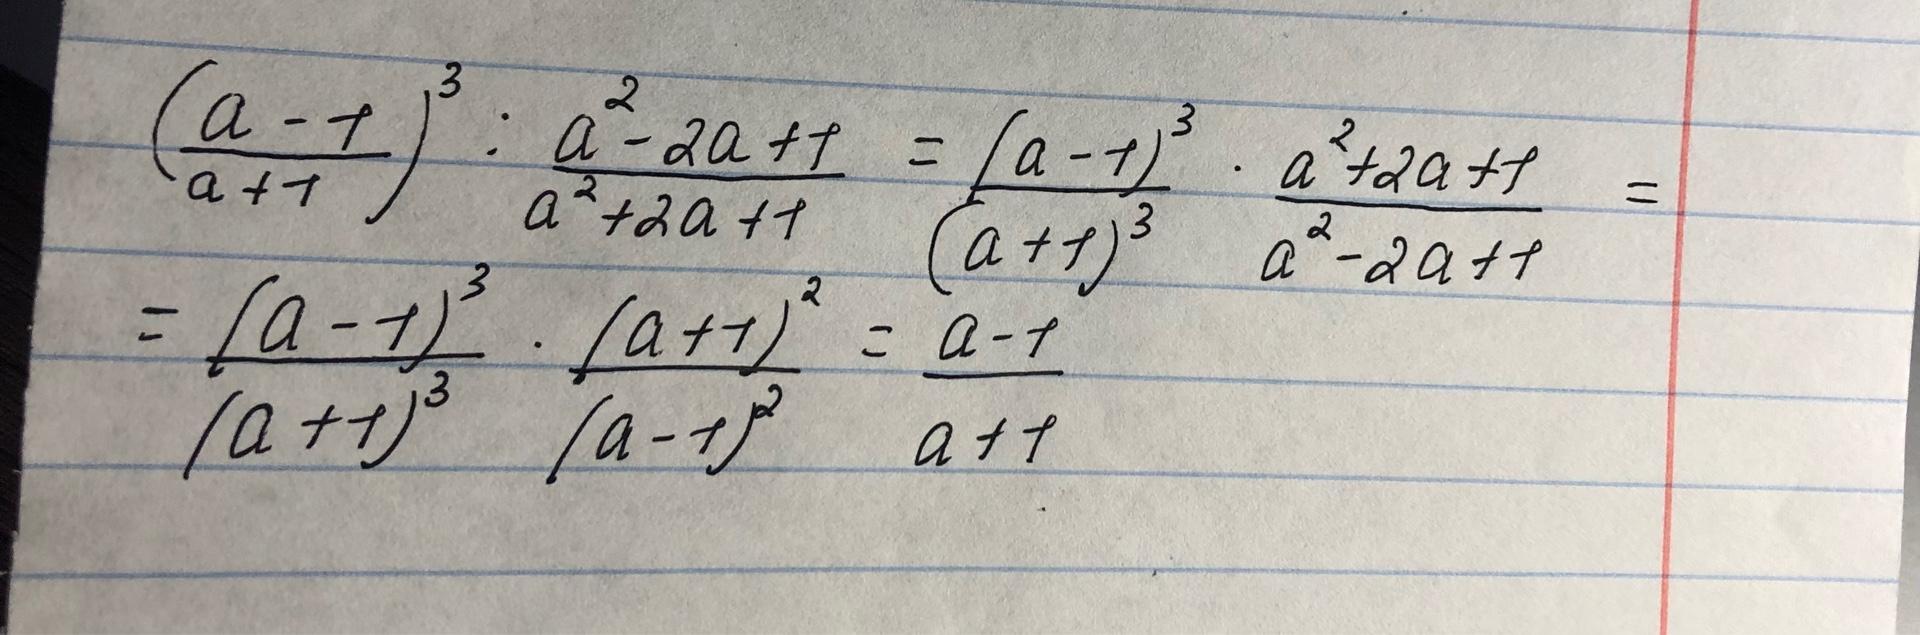 (a-1/a+1)^3 : a^2-2a+1/a^2+2a+1 = (a-1)^3/(a+1)^3 · a^2+2a+1/a^2-2a+1 =
= (a-1)^3/(a+1)^3 · (a+1)^2/(a-1)^2 = a-1/a+1